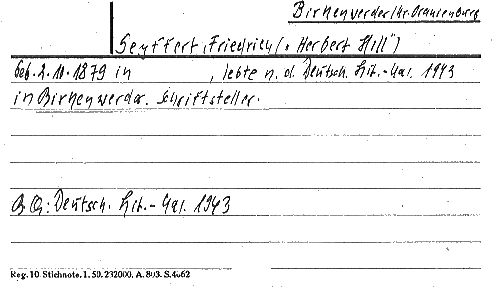 Birkenwerder/Kr. Oranienburg
Seyffert, Friedrich (" Herbert Hill")
Geb. 2.10.1879 in          , lebte n. d. Deutsch. Lit.-Kal. 1943
in Birkenwerder. Schriftsteller.
QQ: Deutsch. Lit.-Kal. 1943
Reg. 10 Stichnote. 1. 50. 232000. A. 803. S. 4062